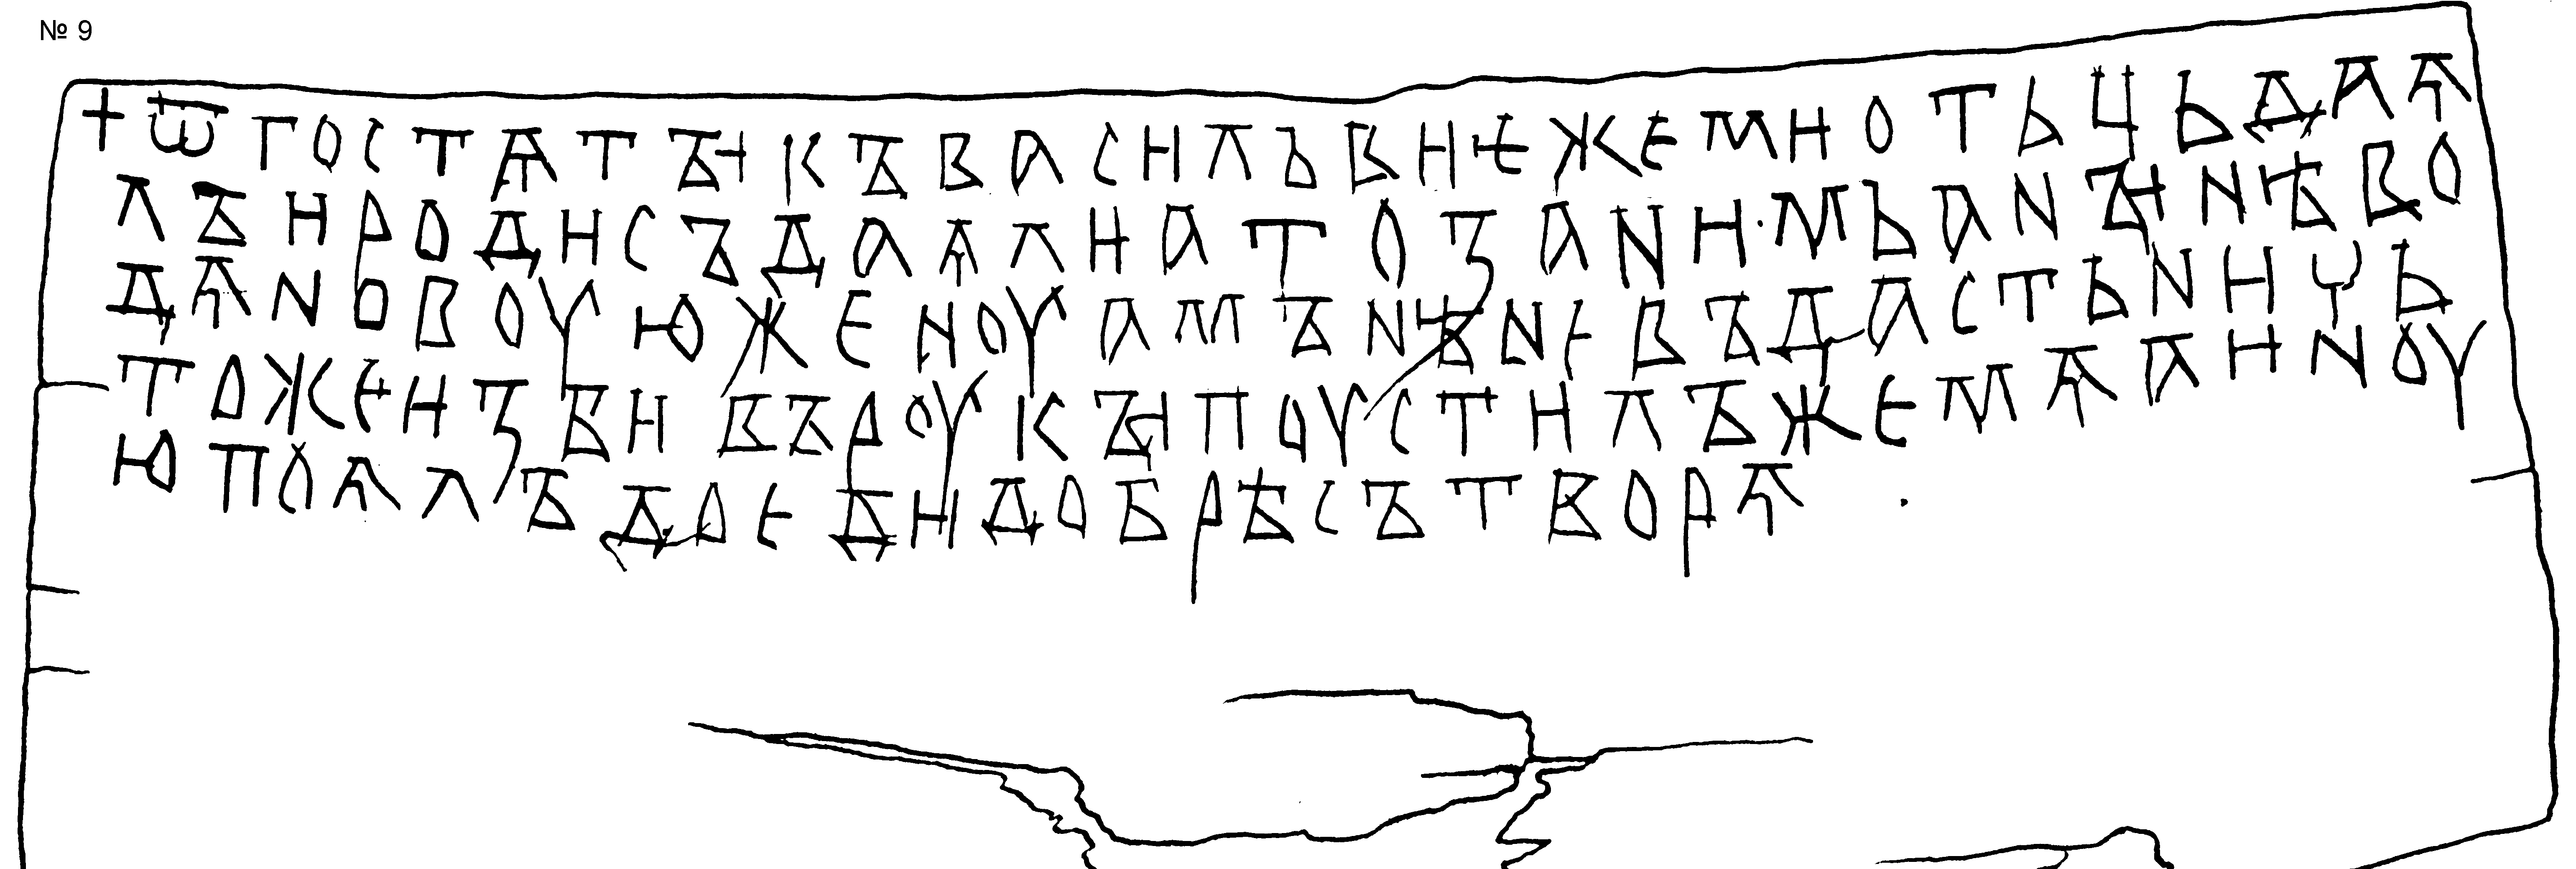 № 9
+ ѿгостѧтꙑкъвасильвиѥжемиотьцьдаѧ
лъиродисъдаѧлиатозани·мьанꙑнѣво
дѧновоуюженоуамънѣневъдастьничь
тожеизбивъроукꙑпоустилъжемѧаиноу
юпоѧлъдоедидобрѣсътворѧ ·